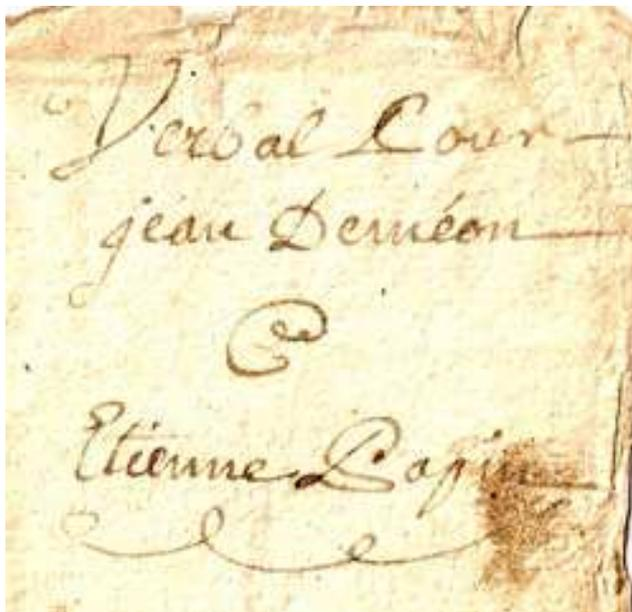 Verbal Pour
jean Deméon
C
Etienne Papin